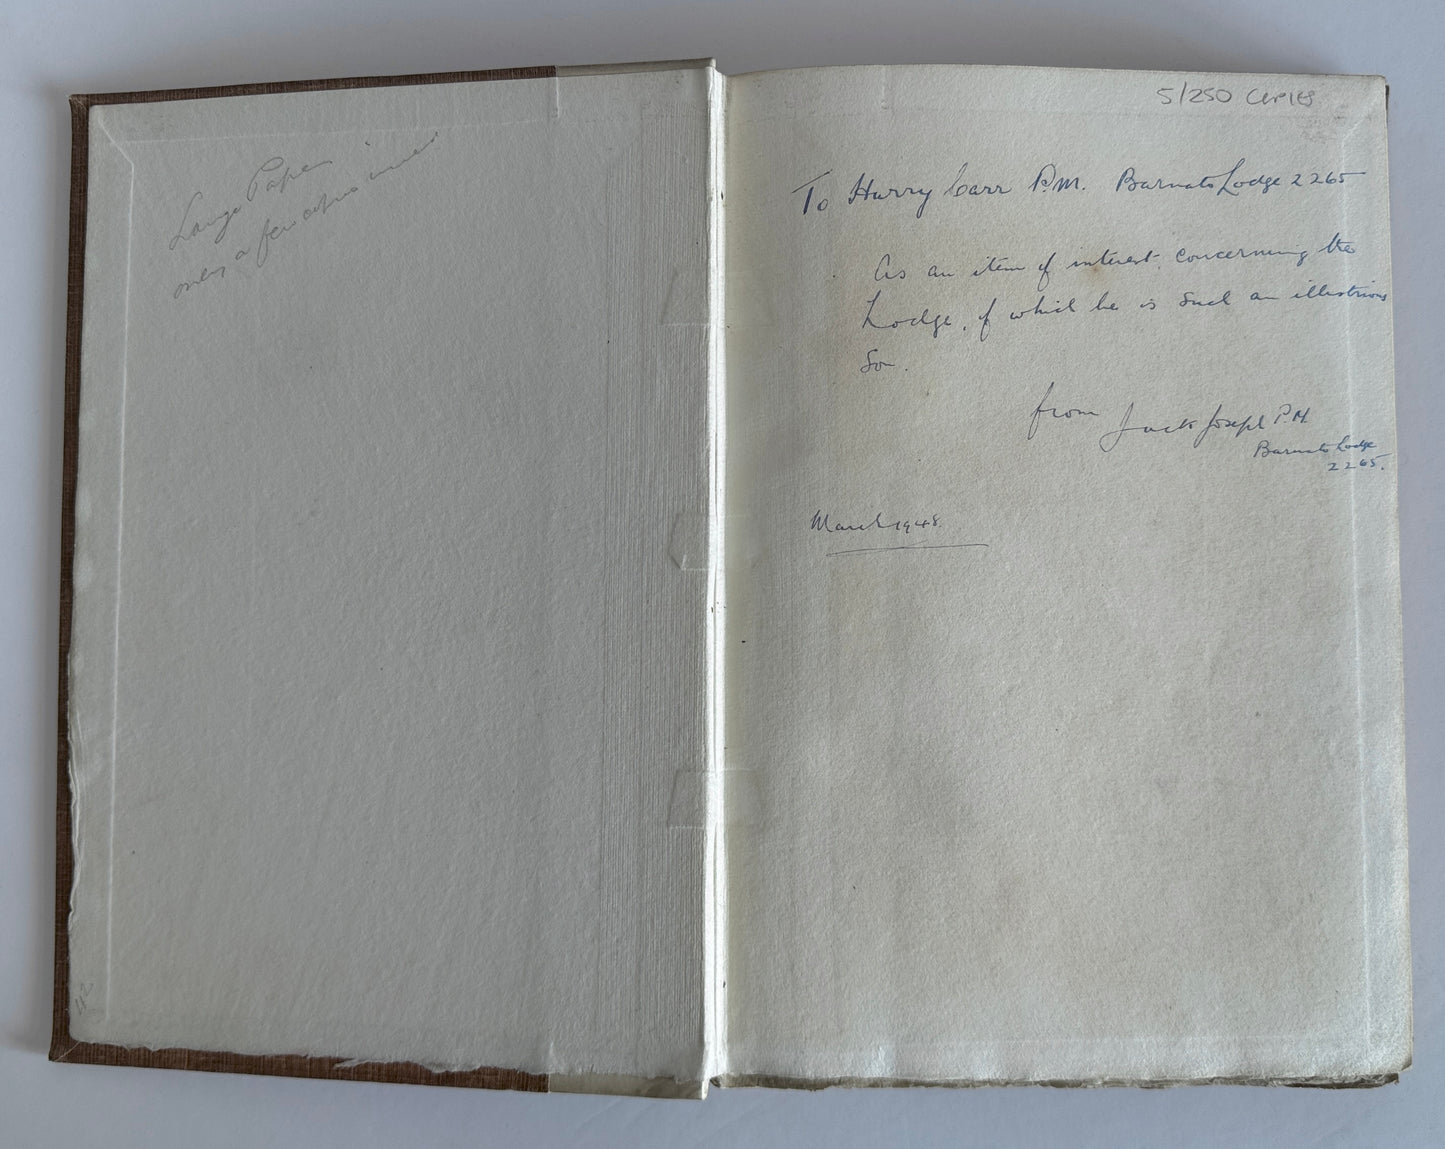 Large Paper
only a few copies issued
42
5/250 COPIES
To Harry Carr P.M. Barnato Lodge 2265
As an item of interest, concerning the
Lodge, of which he is such an illustrious
Son.
from Jack Joseph P.M
Barnato Lodge
2265.
March 1948.